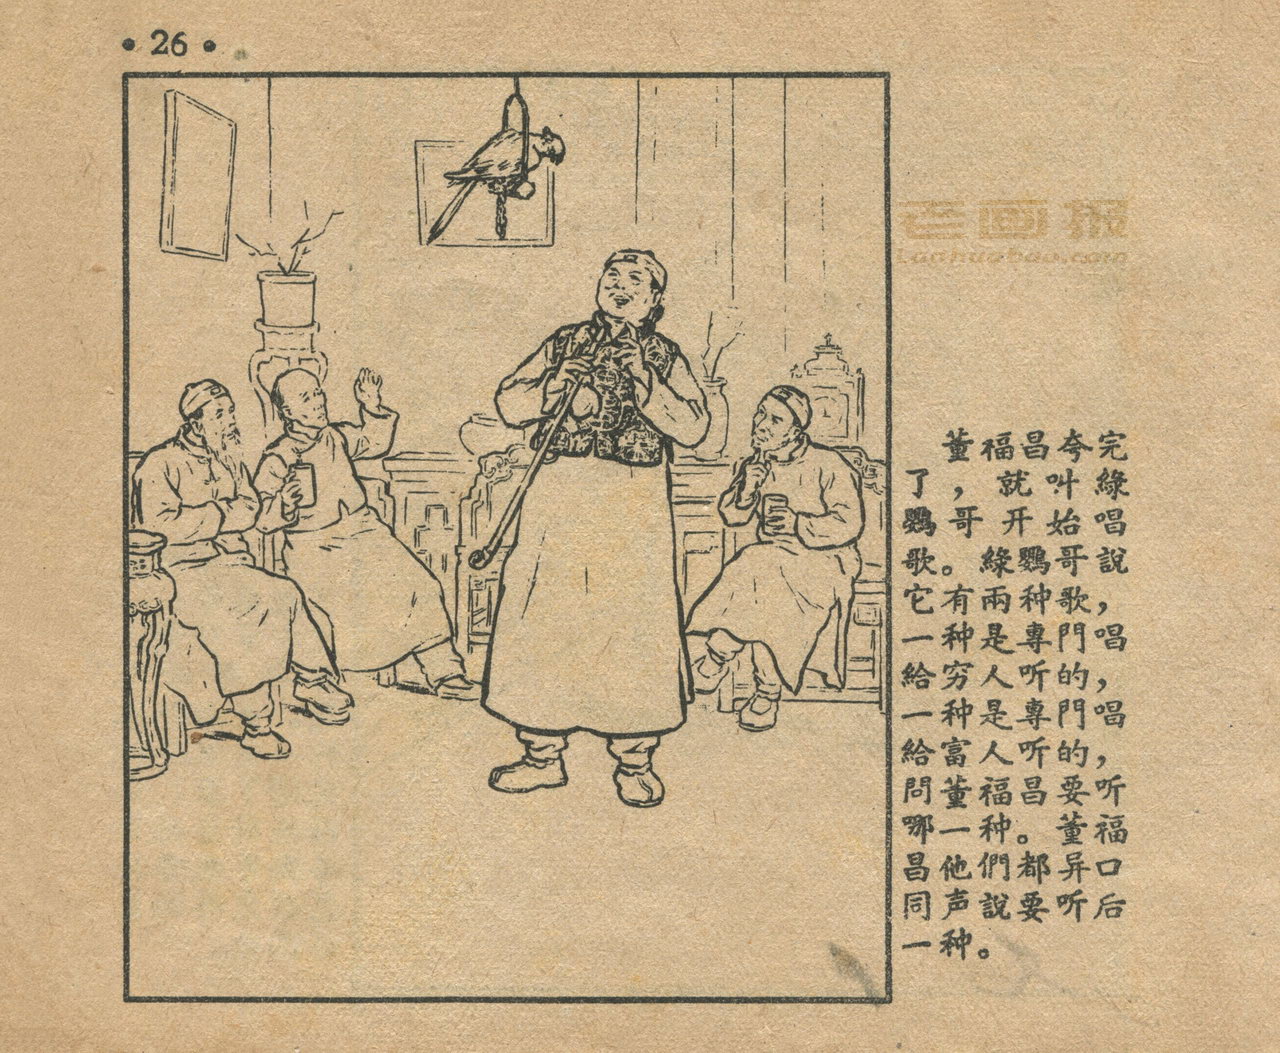 • 26 •
老画报
Laohuabao.com
董福昌夸完
了，就叫綠
鹦哥开始唱
歌。綠鹦哥說
它有兩种歌，
一种是專門唱
給穷人听的，
一种是專門唱
給富人听的，
問董福昌要听
哪一种。董福
昌他們都异口
同声說要听后
一种。